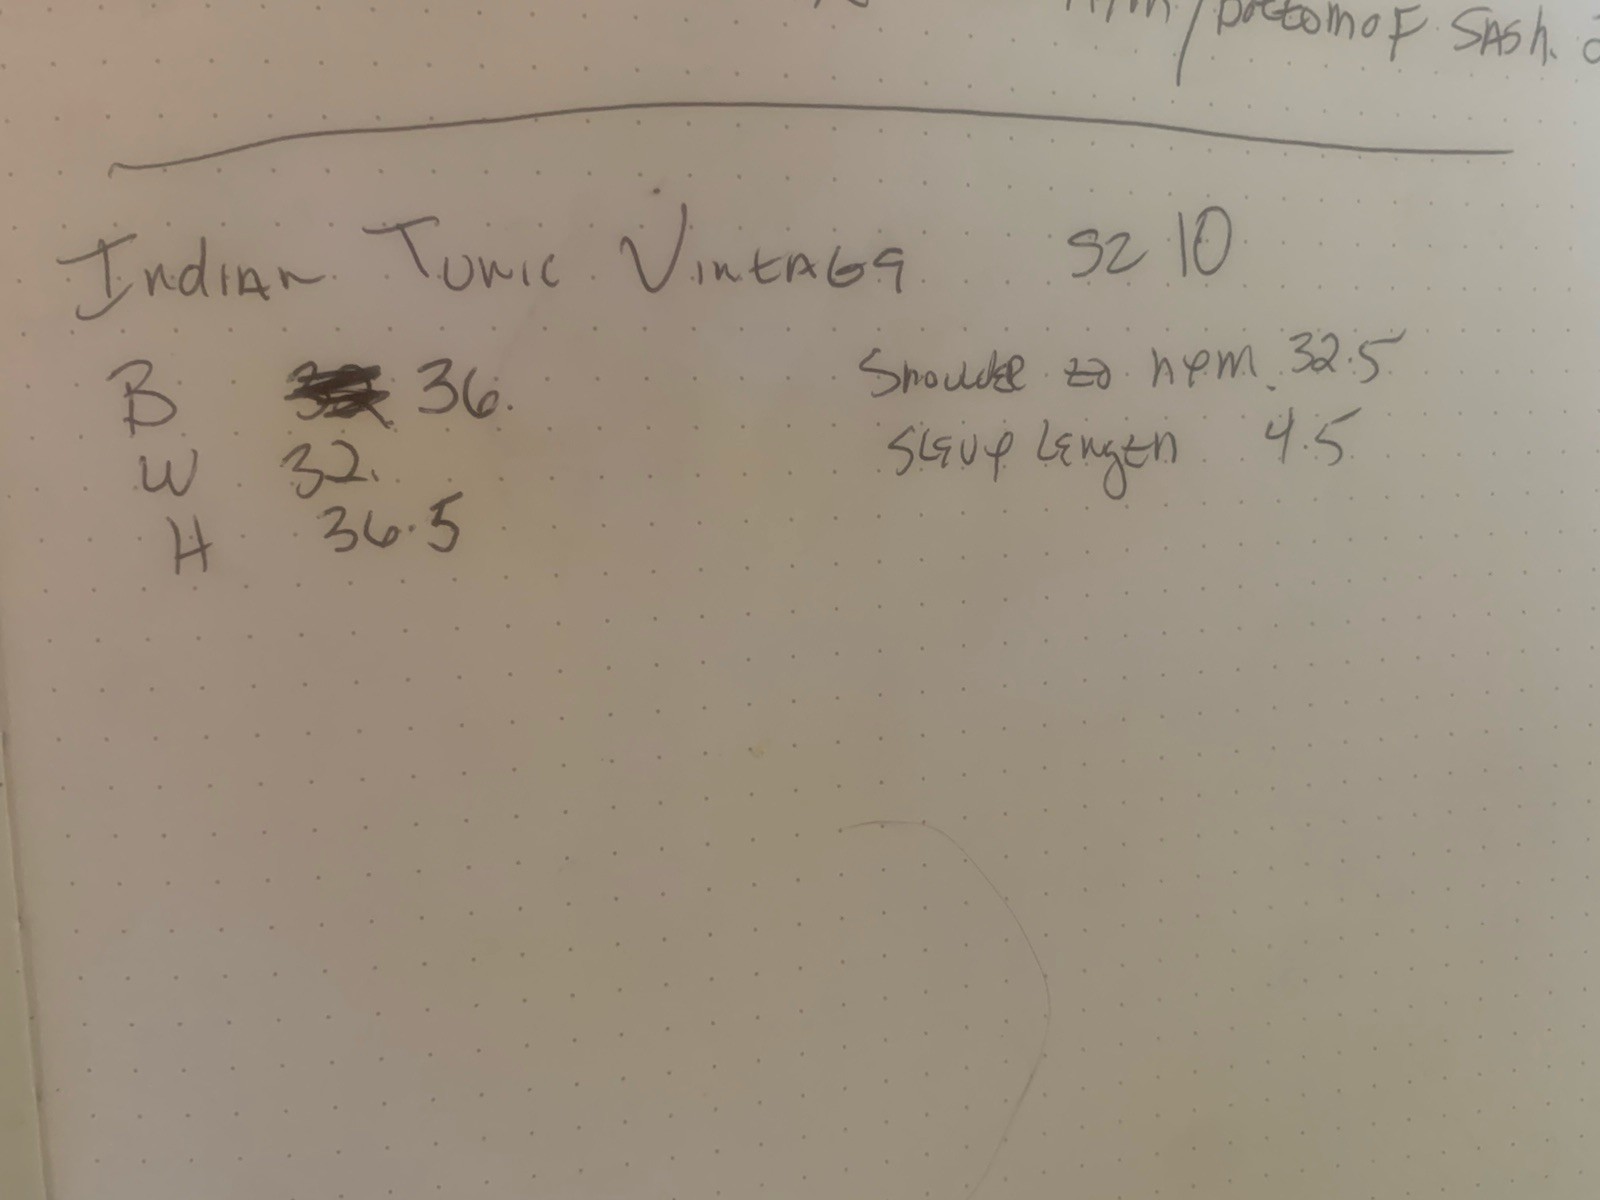 bottom of Sash.
Indian Tunic Vintage SZ 10
B 36.
W 32.
H 36.5
Shoulder to hem. 32.5
Sleeve Length 4.5